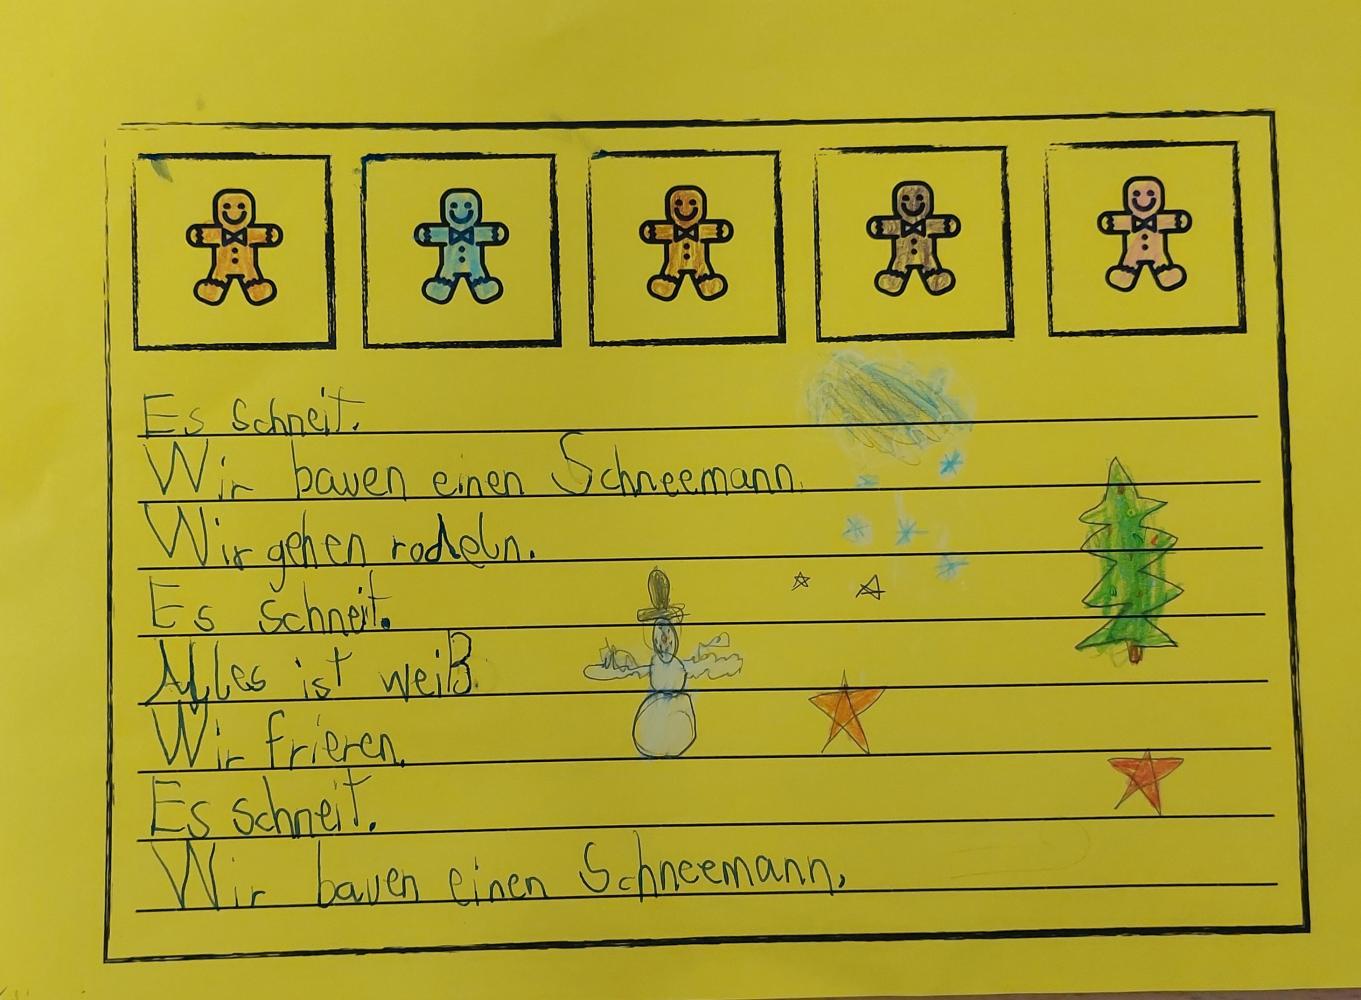 Es schneit.
Wir bauen einen Schneemann.
Wir gehen rodeln.
Es schneit.
Alles ist weiß.
Wir frieren.
Es schneit.
Wir bauen einen Schneemann.